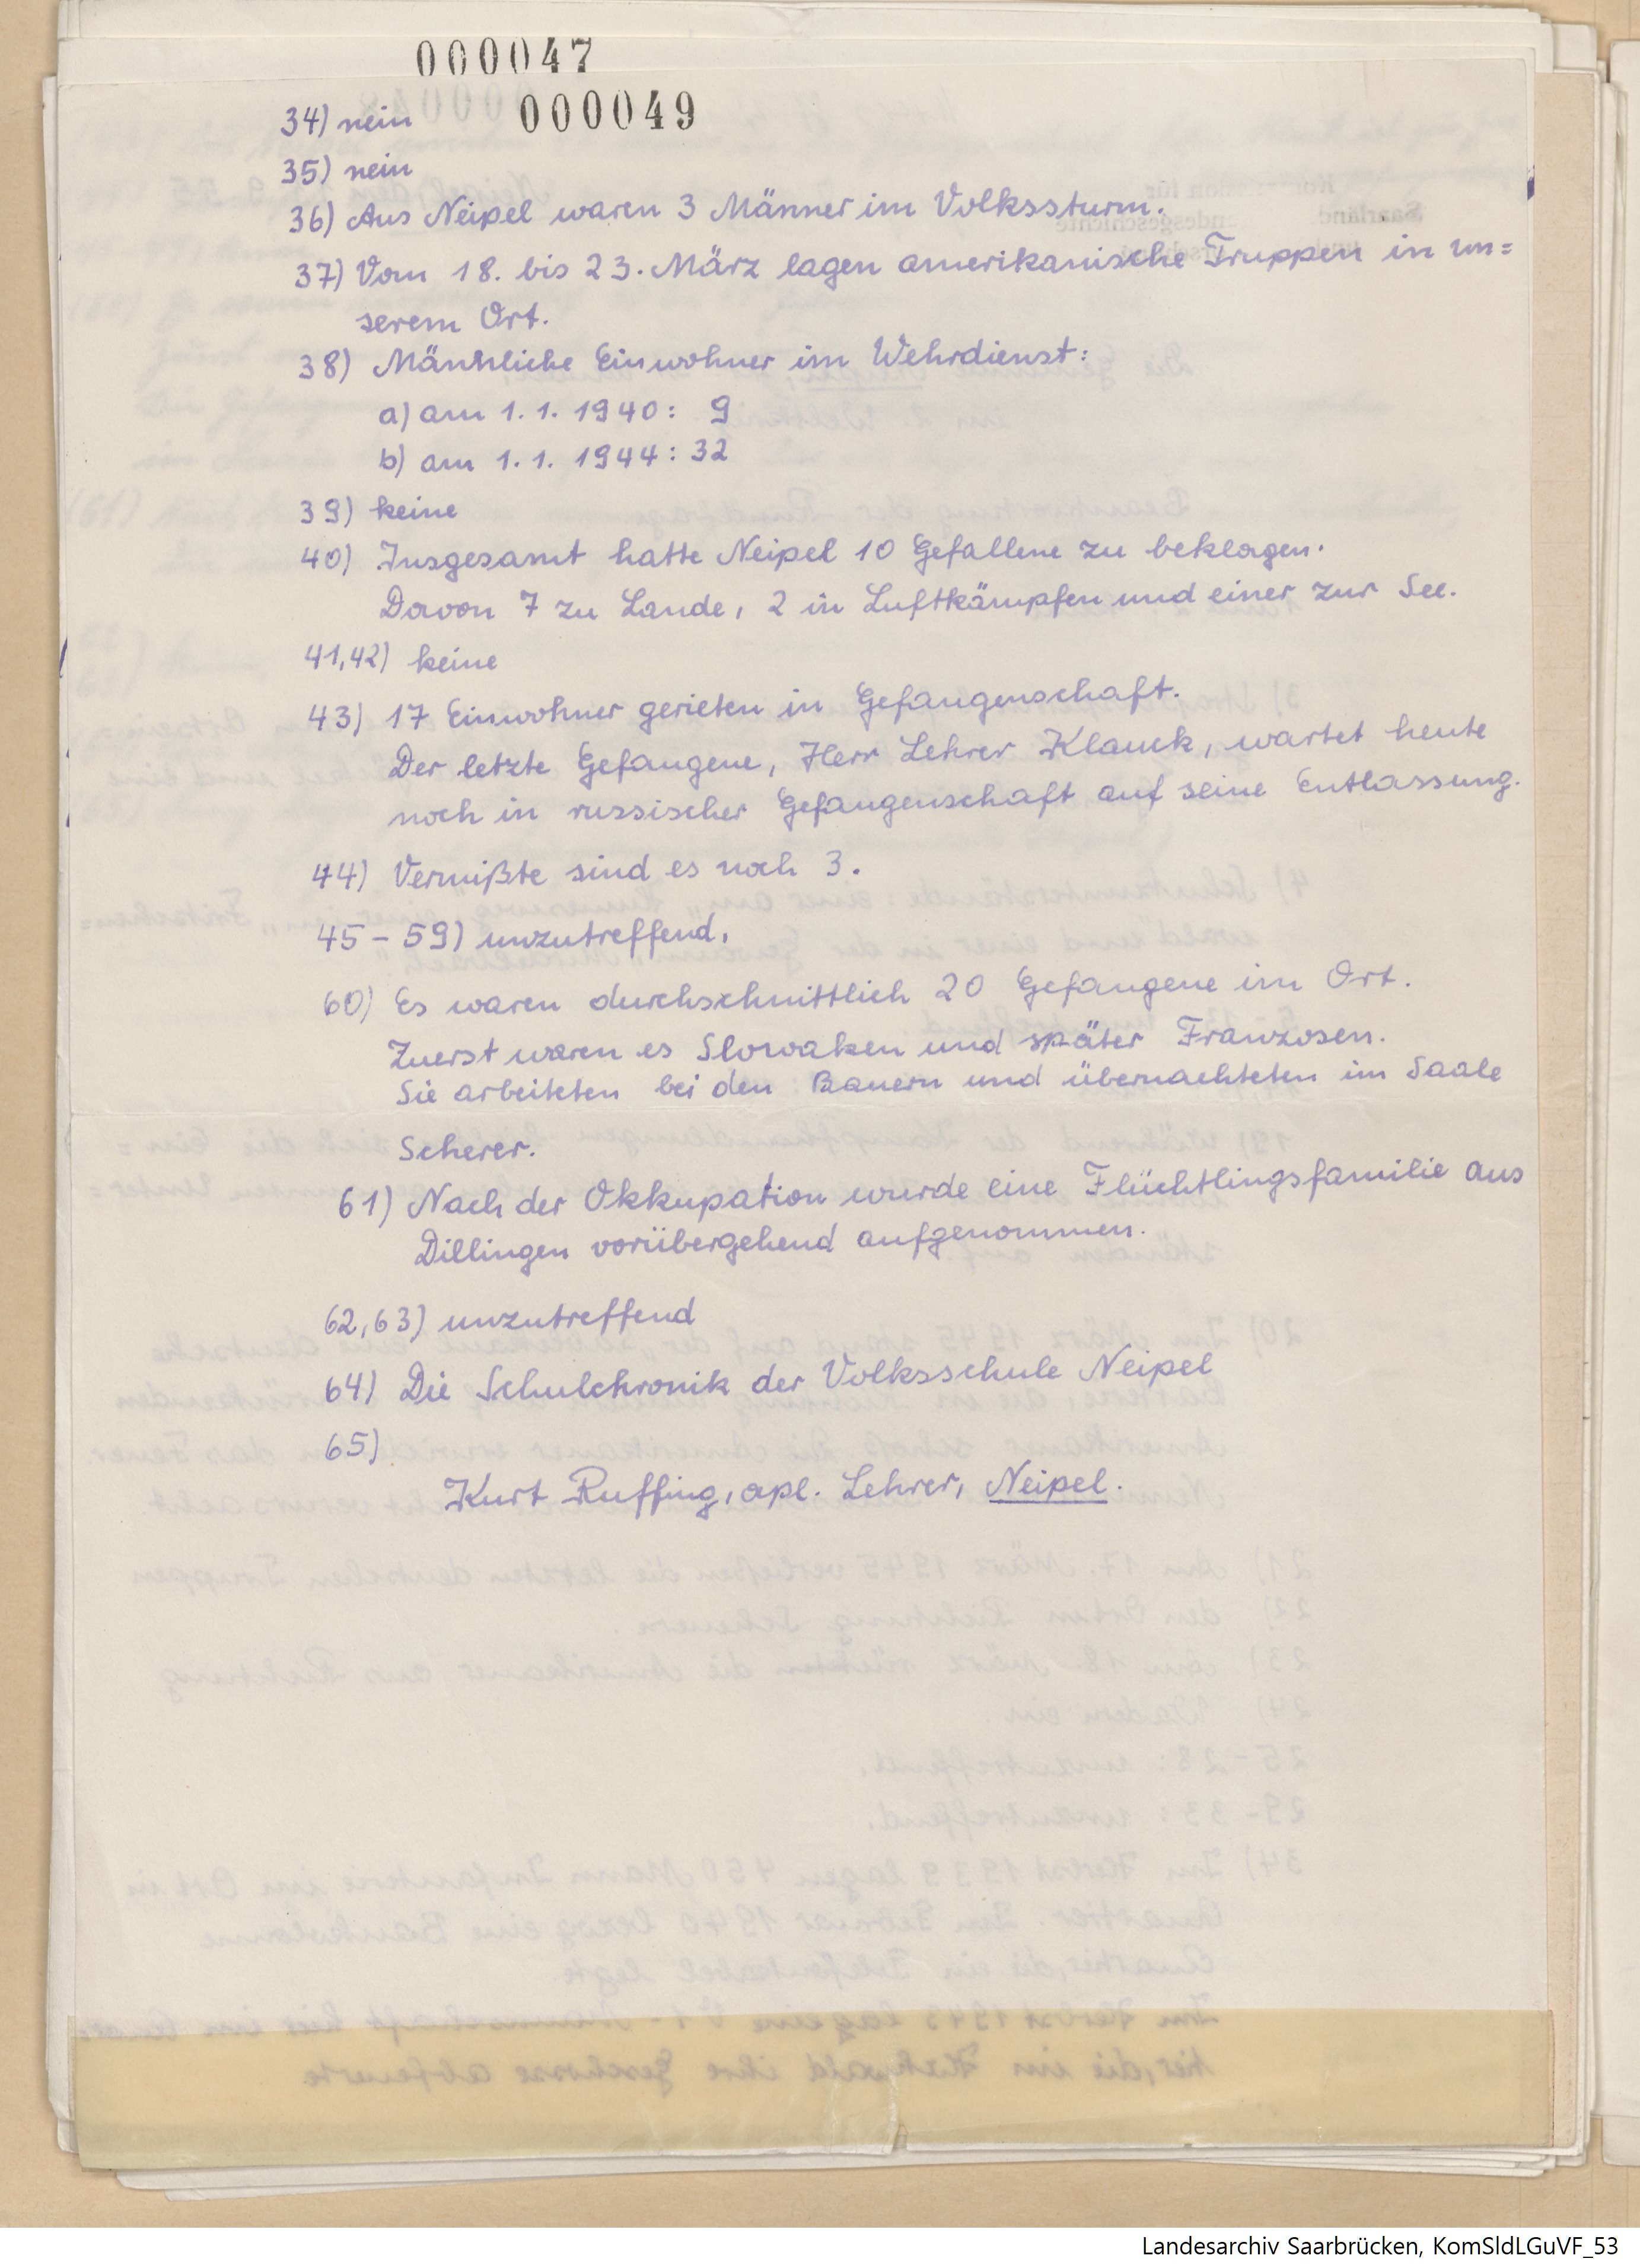 000047
000049
34) nein
35) nein
36) Aus Neipel waren 3 Männer im Volkssturm.
37) Vom 18. bis 23. März lagen amerikanische Truppen in un=
serem Ort.
38) Männliche Einwohner im Wehrdienst:
a) am 1. 1. 1940: 9
b) am 1. 1. 1944: 32
39) keine
40) Insgesamt hatte Neipel 10 Gefallene zu beklagen.
Davon 7 zu Lande, 2 in Luftkämpfen und einer zur See.
41,42) keine
43) 17 Einwohner gerieten in Gefangenschaft.
Der letzte Gefangene, Herr Lehrer Klauck, wartet heute
noch in russischer Gefangenschaft auf seine Entlassung.
44) Vermißte sind es noch 3.
45 - 59) unzutreffend.
60) Es waren durchschnittlich 20 Gefangene im Ort.
Zuerst waren es Slowaken und später Franzosen.
Sie arbeiteten bei den Bauern und übernachteten im Saale
Scherer.
61) Nach der Okkupation wurde eine Flüchtlingsfamilie aus
Dillingen vorübergehend aufgenommen.
62,63) unzutreffend
64) Die Schulchronik der Volksschule Neipel
65)
Kurt Ruffing, apl. Lehrer, Neipel.
Landesarchiv Saarbrücken, KomSldLGuVF_53